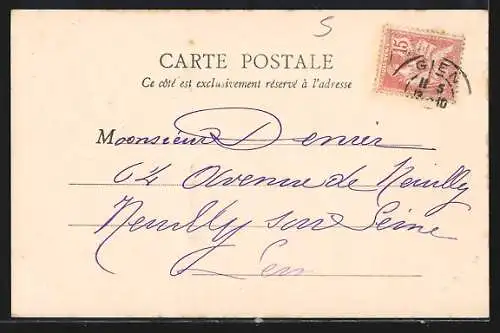 5
CARTE POSTALE
Ce côté est exclusivement réservé à l'adresse
15
GIEN
11 5
Monsieur Denier
64 Avenue de Neuilly
Neuilly sur Seine